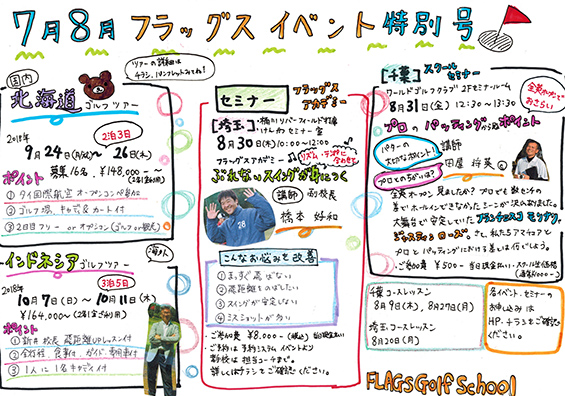 7月8月 フラッグス イベント 特別号
ツアーの詳細は
チラシ、パンフレットみてね！
国内
北海道 ゴルフツアー
2018年
2泊3日
9月24日(月/祝)～26日(水)
募集16名 ¥148,000-～
ポイント
① タイ国際航空オープンコンペ参加
② ゴルフ場、キャディ&カート付
③ 2日目フリー or オプション(ゴルフor観光)
インドネシア ゴルフツアー
海外
2018年
3泊5日
10月7日(日)～10月11日(木)
¥164,000～
ポイント
① 新井校長 飛距離UPレッスン付
② 全行程、食事付、ガイド、専用車付
③ 1人に1名キャディ付
セミナー
フラッグス
アカデミー
[埼玉]
桶川リバーフィールド打席
けんかセミナー室
8月30日(木) 10:00～12:00
フラッグスアカデミー
リズム・テンポに
合わせて
ぶれないスイングが身につく
講師 副校長
橋本 好和
こんなお悩みを改善
① まっすぐ飛ばない
② 飛距離をのばしたい
③ スイングが安定しない
④ ミスショットが多い
・ご参加費 ¥8,000-(税込) 当日現金払い
・ご予約は予約システム イベントより
新校は担当コーチまで。
詳しくはチラシでご確認ください。
[千葉] スクール
セミナー
ワールドゴルフクラブ 2Fセミナールーム
8月31日(金) 12:30～13:30
全英オープン
おさらい
プロのパッティングから学ぶポイント
パターの
大切なポイント！
プロとのちがいは？
講師
全英オープン見ましたか？プロでも数センチの
差でホールインできなかったシーンが沢山ありました。
大舞台で安定していたフランチェスコ モリナリ、
ジャスティン ローズ さて、私たちアマチュアと
プロとパッティングにおける差とは何でしょう。
・ご参加費 ¥500- 当日現金払い
千葉コースレッスン
8月9日(木)、8月27日(月)
埼玉コースレッスン
8月20日(月)
各イベント・セミナーの
お申し込みは
HP・チラシをご確認
ください。
FLAGS Golf School